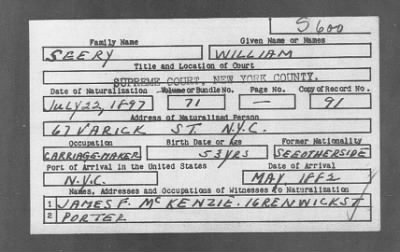 S600
Family Name Given Name or Names
SEERY WILLIAM
Title and Location of Court
SUPREME COURT, NEW YORK COUNTY.
Date of Naturalization Volume or Bundle No. Page No. Copy of Record No.
JULY 22, 1897 71 — 91
Address of Naturalized Person
67 VARICK ST. N.Y.C.
Occupation Birth Date or Age Former Nationality
CARRIAGE-MAKER 53 YRS SEE OTHERSIDE
Port of Arrival in the United States Date of Arrival
N.Y.C. MAY 1882
Names, Addresses and Occupations of Witnesses to Naturalization
1 JAMES F. McKENZIE. 16 RENWICK ST
2 PORTER